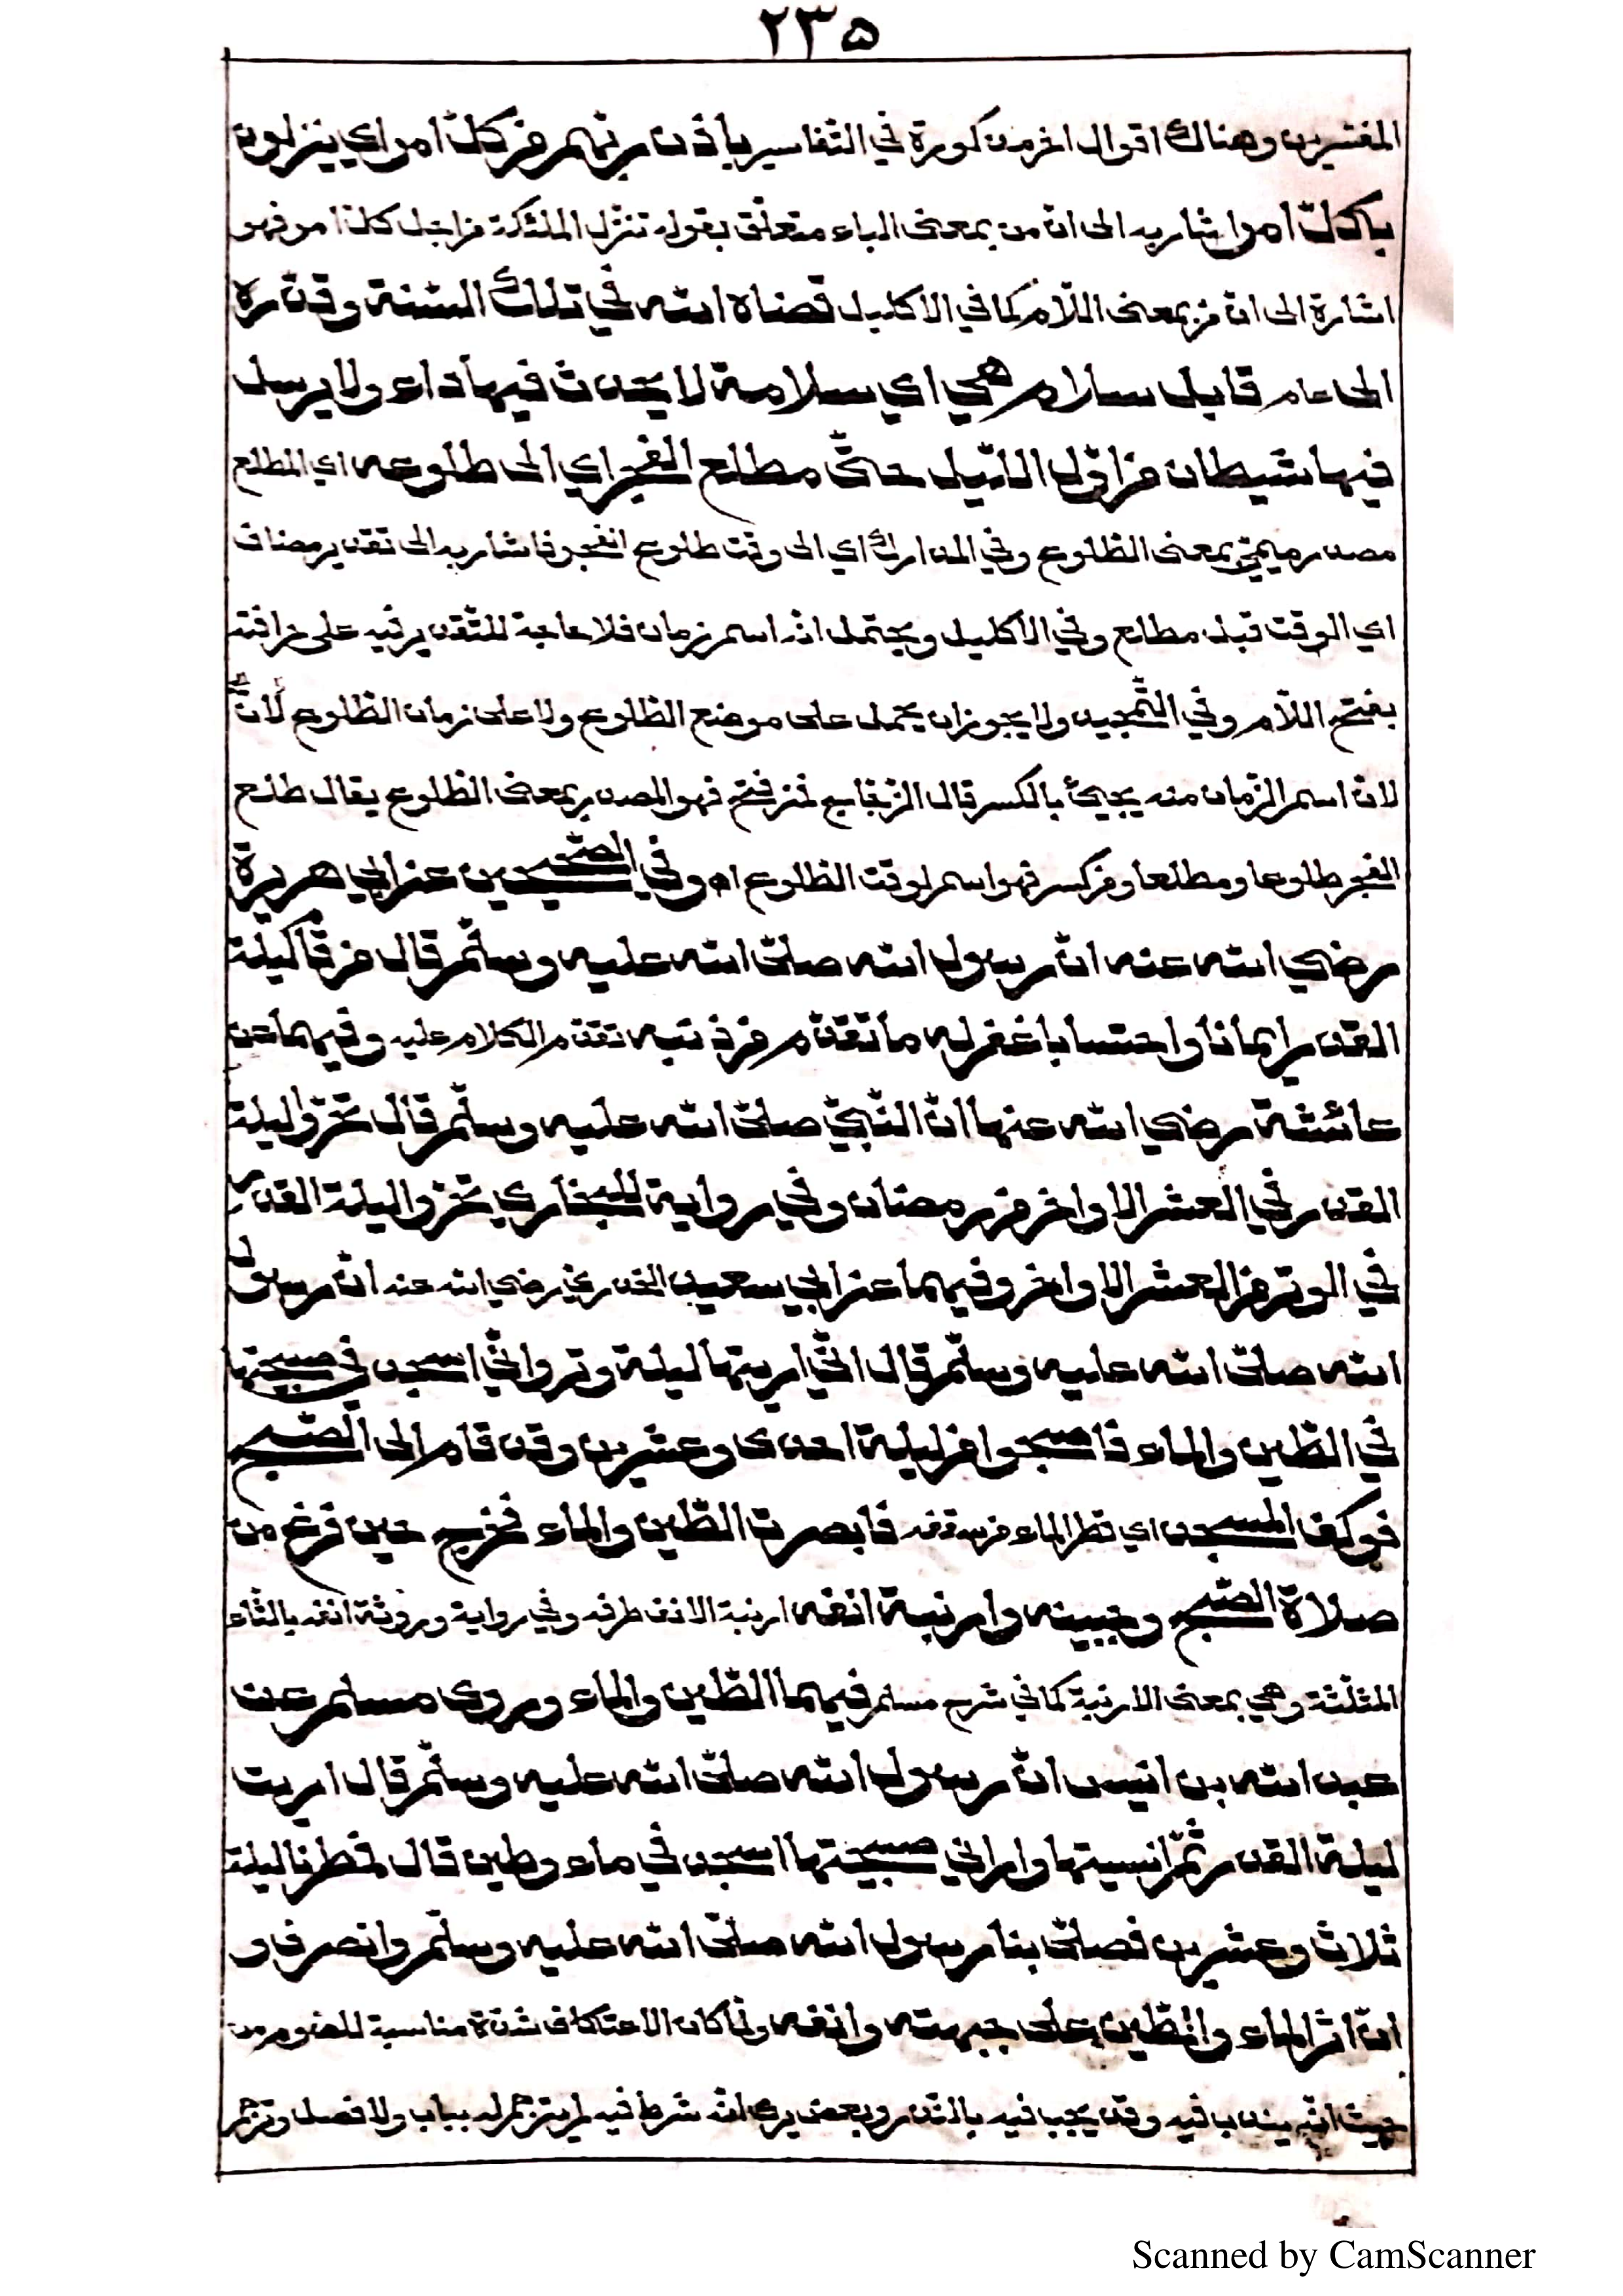 ٢٣٥
المفسرين وهناك اقوال اخر مذكورة في التفاسير بأذن ربهم من كلّ امر اي ينزلون
بأكلّ امر اشار به الى ان من بمعنى الباء متعلق بقوله تنزل الملئكة من اجل كل امر فهو
اشارة الى ان من بمعنى اللّام كما في الاكليل قضاه الله في تلك السّنة وقدّره
الى عام قابل سلام هي اي سلامة لا يحدث فيها داء ولا يرسل
فيها شيطان من اوّل اللّيل حتّى مطلع الفجر اي الى طلوعه اي المطلع
مصدر ميميّ بمعنى الطّلوع وفي المدارك اي الى وقت طلوع الفجر فاشار به الى تقدير مضاف
اي الوقت قبل مطلع وفي الاكليل ويحتمل انّه اسم زمان فلا حاجة للتّقدير فيه على
بفتح اللّام وفي التّمجيد ولا يجوز ان يحمل على موضع الطّلوع ولا على زمان الطّلوع لأنّ
لان اسم الزّمان منه يجيئ بالكسر قال الزّجّاج فمن فتح فهو المصدر بمعنى الطّلوع يقال طلع
الفجر طلوعا ومطلعا ومن كسر فهو اسم لوقت الطّلوع اه وفي الصّحيحين عن ابي هريرة
رضي الله عنه انّ رسول الله صلّى الله عليه وسلّم قال من قام ليلة
القدر ايمانا واحتسابا غفر له ما تقدّم من ذنبه تقدّم الكلام عليه وفيهما عن
عائشة رضي الله عنها انّ النّبيّ صلّى الله عليه وسلّم قال تحرّوا ليلة
القدر في العشر الاواخر من رمضان وفي رواية للبخاري تحرّوا ليلة القدر
في الوتر من العشر الاواخر وفيهما عن ابي سعيد الخدريّ رضي الله عنه انّ رسول
الله صلّى الله عليه وسلّم قال انّي اريتها ليلة وتر وانّي اسجد في صبيحتها
في الطّين والماء فاصبحوا من ليلة احدى وعشرين وقد قام الى الصّبح
فوكف المسجد اي قطر الماء من سقفه فابصرت الطّين والماء فخرج حين فرغ من
صلاة الصّبح وجبينه وارنبة انفه ارنبة الانف طرفه وفي رواية وروثة انفه بالثّاء
المثلّثة وهي بمعنى الارنبة كما في شرح مسلم فيهما الطّين والماء وروى مسلم عن
عبد الله بن انيس انّ رسول الله صلّى الله عليه وسلّم قال اريت
ليلة القدر ثمّ انسيتها واراني صبيحتها اسجد في ماء وطين قال فمطرنا ليلة
ثلاث وعشرين فصلّى بنا رسول الله صلّى الله عليه وسلّم وانصرف و
انّ اثر الماء والطّين على جبهته وانفه ولمّا كان الاعتكاف شدّة مناسبة للصّوم من
حيث انّه يندب فيه وقد يجب فيه بالنّذر وبعض يرى انّه شرط فيه لم يترجم له بباب ولا فصل وترجم
Scanned by CamScanner